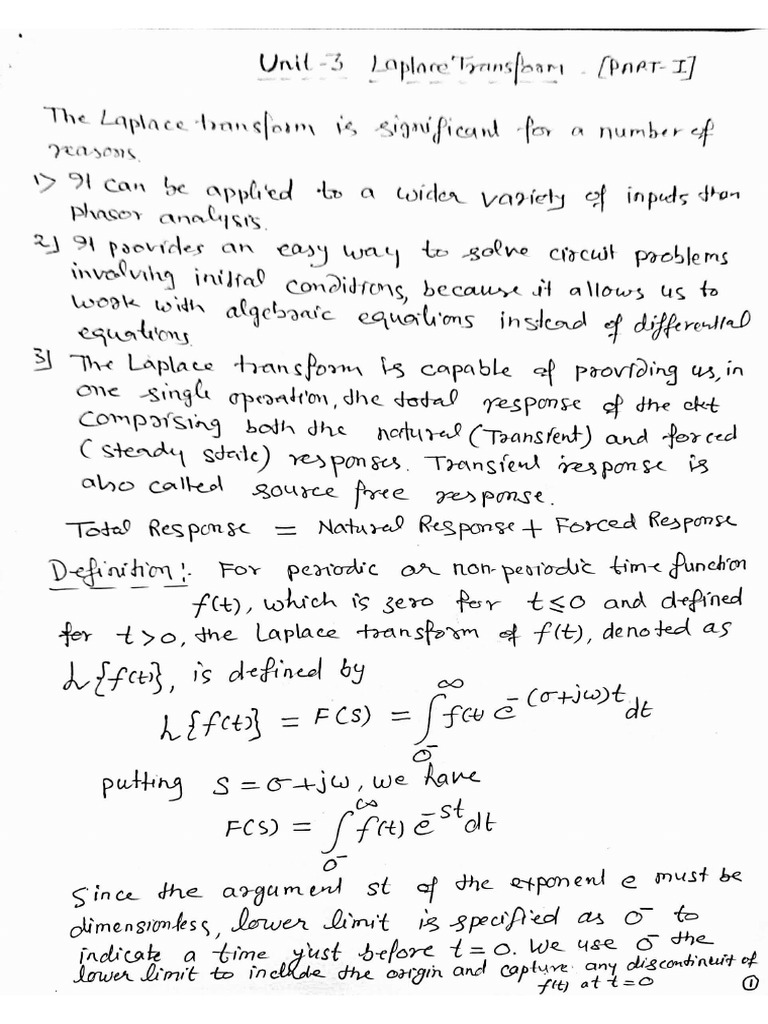 Unit-3 Laplace Transform - [PART-I]
The Laplace transform is significant for a number of
reasons.
1) It can be applied to a wider variety of inputs than
phasor analysis.
2) It provides an easy way to solve circuit problems
involving initial conditions, because it allows us to
work with algebraic equations instead of differential
equations
3) The Laplace transform is capable of providing us, in
one single operation, the total response of the ckt
comprising both the natural (Transient) and forced
(steady state) responses. Transient response is
also called source free response.
Total Response = Natural Response + Forced Response
Definition:- For periodic or non-periodic time function
f(t), which is zero for t≤0 and defined
for t>0, the Laplace transform of f(t), denoted as
L{f(t)}, is defined by
L{f(t)} = F(S) = ∫₀₋^∞ f(t) e^-(σ+jω)t dt
putting S = σ+jω, we have
F(S) = ∫₀₋^∞ f(t) e^-st dt
Since the argument st of the exponent e must be
dimensionless, lower limit is specified as 0⁻ to
indicate a time just before t=0. We use 0⁻ the
lower limit to include the origin and capture any discontinuit of
f(t) at t=0
1